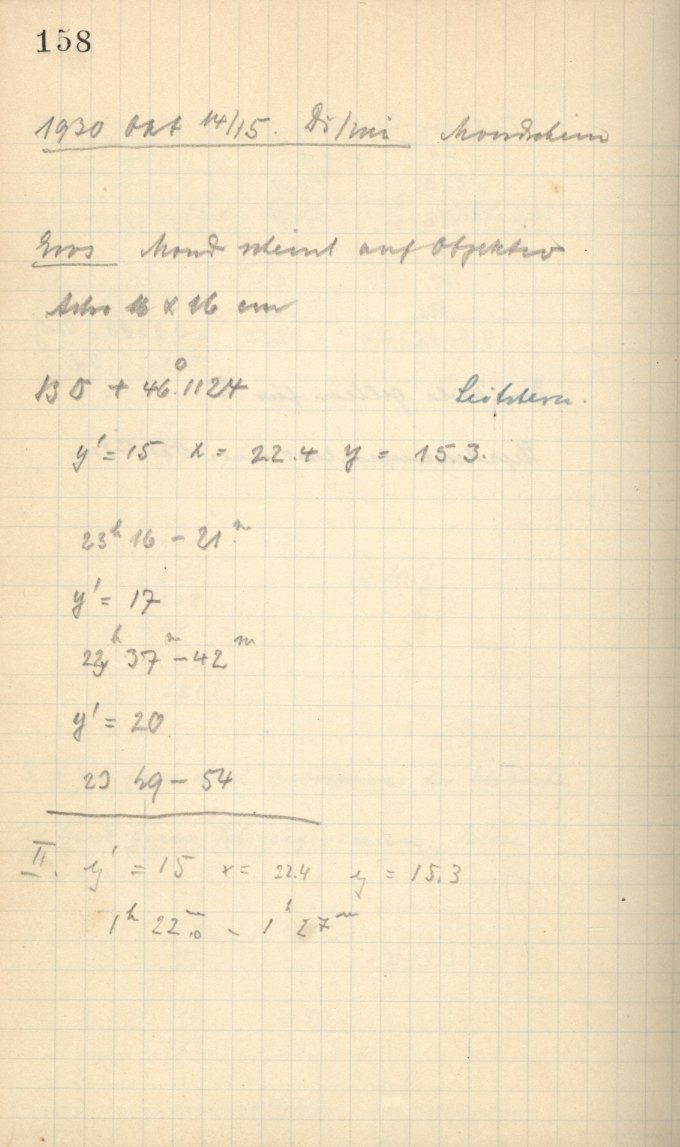 158
1930 Okt 14/15. Di/Mi Mondschein
Eros Mond scheint auf Objektiv
Astro 16 x 16 cm
BD + 46°.1124 Leitstern.
y' = 15 x = 22.4 y = 15.3.
23h 16 - 21m
y' = 17
23h 37m - 42m
y' = 20
23 49 - 54
II. y' = 15 x = 22.4 y = 15.3
1h 22m.0 - 1h 27m